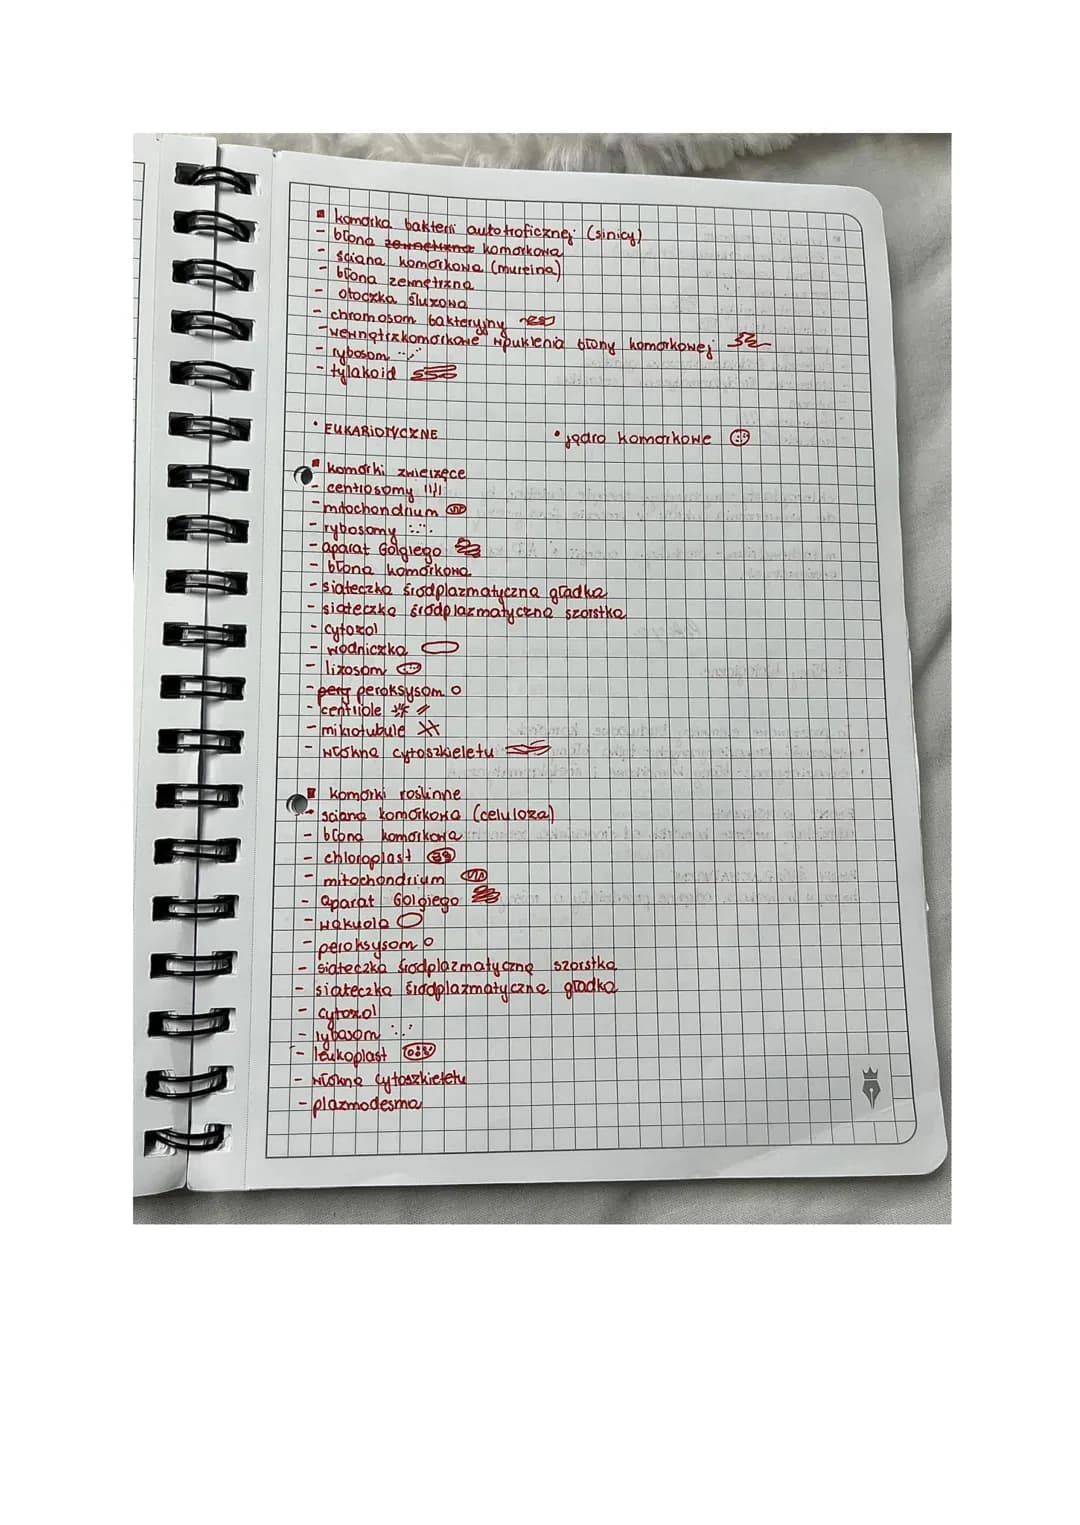 ▪ komórka bakterii autotroficznej (sinicy)
- błona zewnętrzna komórkowa
- ściana komórkowa (mureina)
- błona zewnętrzna
- otoczka śluzowa
- chromosom bakteryjny
- wewnątrzkomórkowe wpuklenia błony komórkowej
- rybosom
- tylakoid
• EUKARIOTYCZNE • jądro komórkowe
▪ komórki zwierzęce
- centrosomy
- mitochondrium
- rybosomy
- aparat Golgiego
- błona komórkowa
- siateczka śródplazmatyczna gładka
- siateczka śródplazmatyczna szorstka
- cytozol
- wodniczka
- lizosom
- perg peroksysom
- centriole
- mikrotubule
- włókna cytoszkieletu
▪ komórki roślinne
- ściana komórkowa (celuloza)
- błona komórkowa
- chloroplast
- mitochondrium
- aparat Golgiego
- wakuola
- peroksysom
- siateczka śródplazmatyczna szorstka
- siateczka śródplazmatyczna gładka
- cytozol
- rybosom
- leukoplast
- włókna cytoszkieletu
- plazmodesma